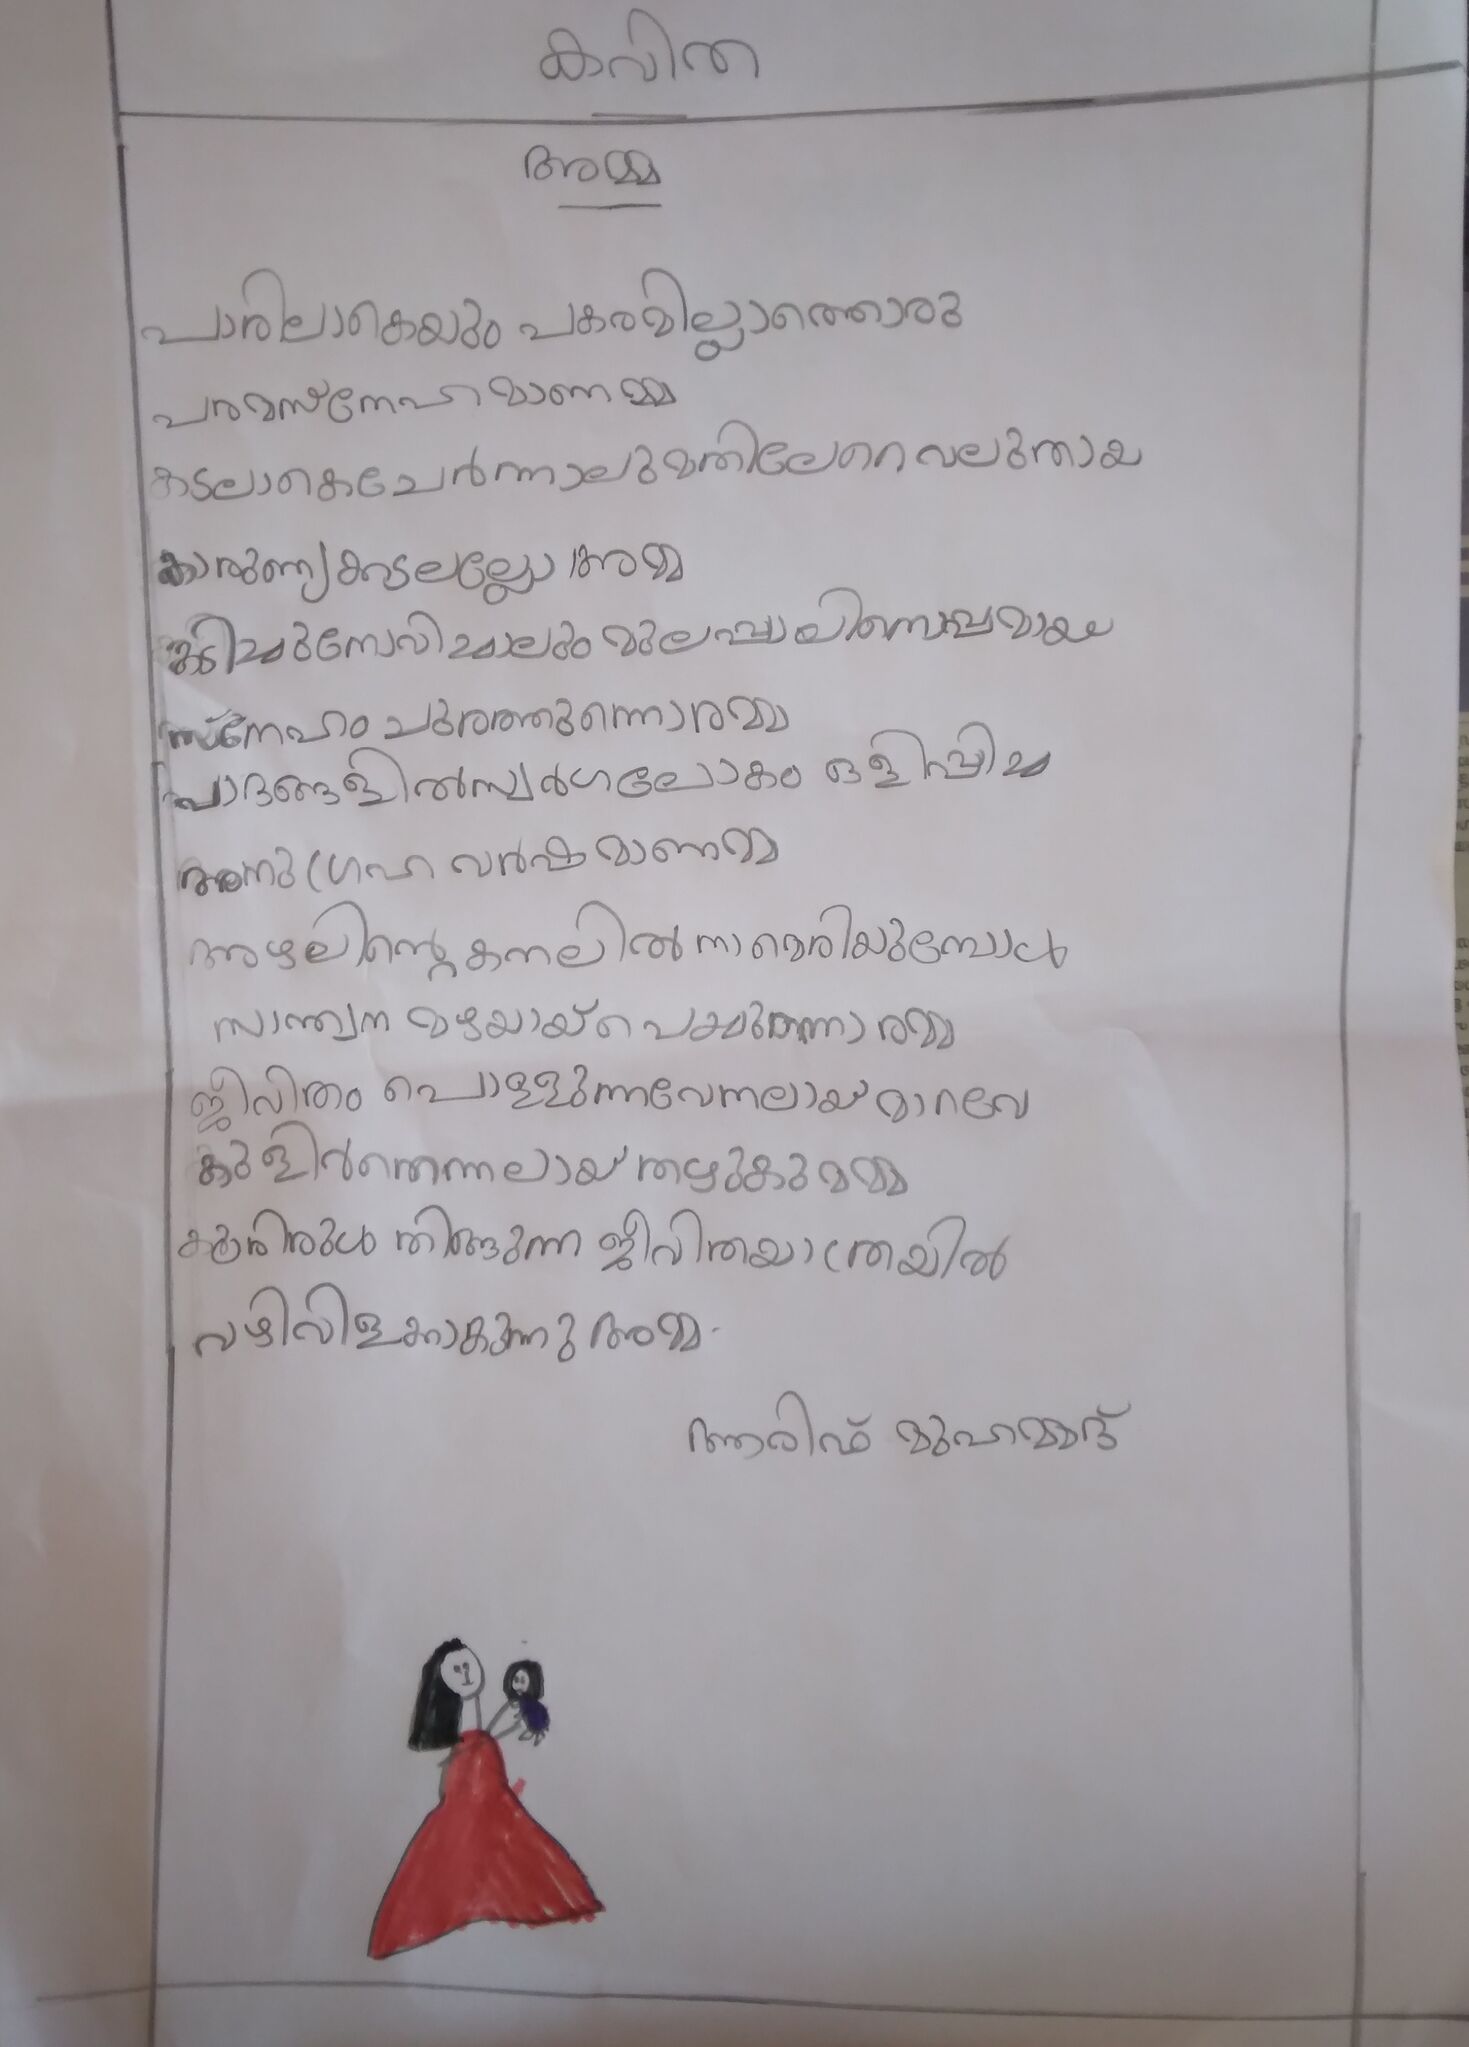 കവിത
അമ്മ
പാരിലാകെയും പകരമില്ലാത്തൊരു
പരമസ്നേഹമാണമ്മ
കടലാകെചേർന്നാലുമതിലേറെവലുതായ
കാരുണ്യകടലല്ലോ അമ്മ
മുലപ്പാലിനൊപ്പമായ
സ്നേഹം ചുരത്തുന്നൊരമ്മ
പാദങ്ങളിൽസ്വർഗലോകം ഒളിപ്പിച്ച
അനുഗ്രഹ വർഷമാണമ്മ
അഴലിന്റെകനലിൽ നാമെരിയുമ്പോൾ
സാന്ത്വന മഴയായ് പെയ്യുന്നൊരമ്മ
ജീവിതം പൊള്ളുന്നവേനലായ് മാറവേ
കുളിർതെന്നലായ് തഴുകുമമ്മ
കൂരിരുൾ തിങ്ങുന്ന ജീവിതയാത്രയിൽ
വഴിവിളക്കാകുന്നു അമ്മ.
ആരിഫ് മുഹമ്മദ്